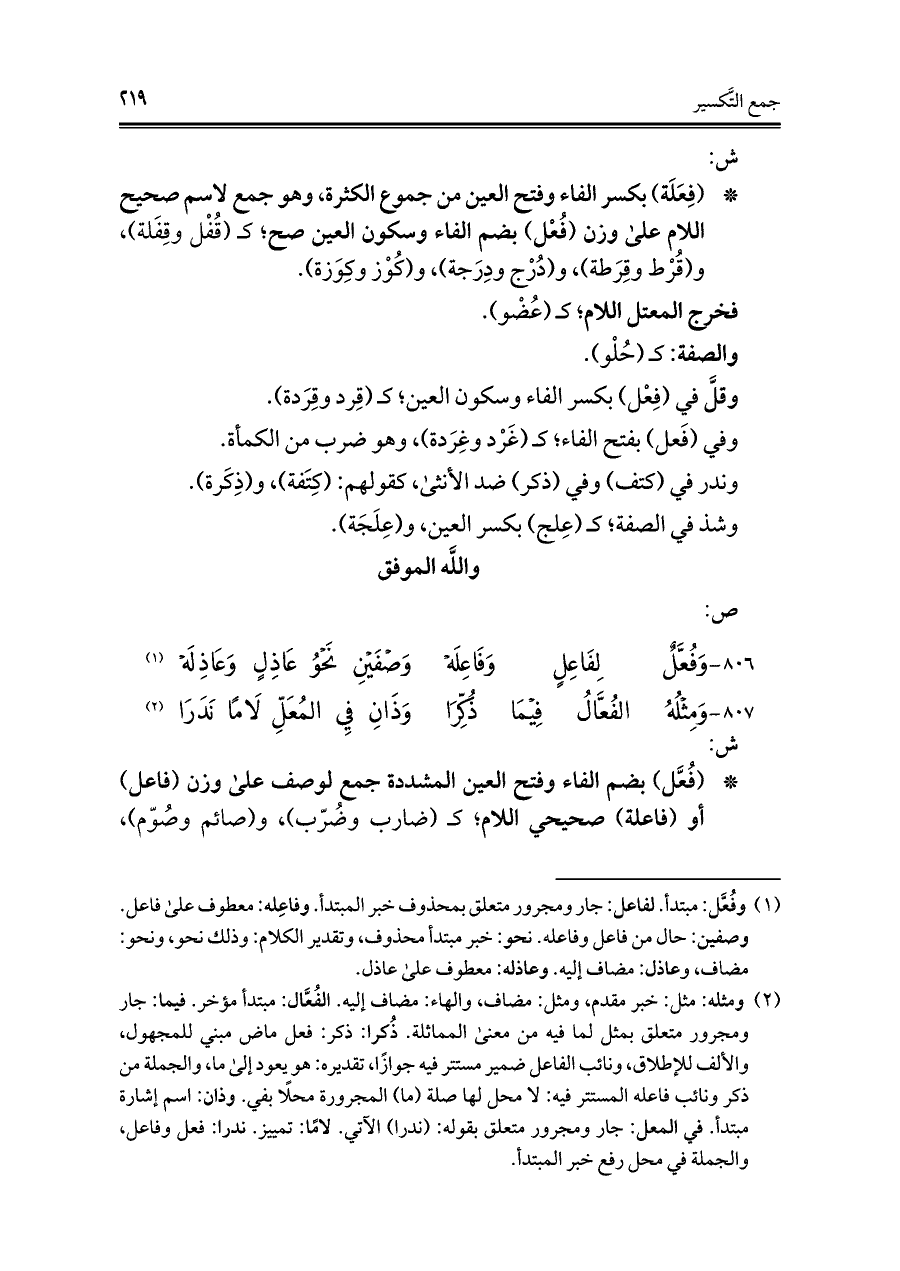 جمع التَّكسير ٢١٩
ش:
* (فِعَلَة) بكسر الفاء وفتح العين من جموع الكثرة، وهو جمع لاسم صحيح
اللام علىٰ وزن (فُعْل) بضم الفاء وسكون العين صح؛ كـ (قُفْل وقِفَلة)،
و(قُرْط وقِرَطة)، و(دُرْج ودِرَجة)، و(كُوْز وكِوَزة).
فخرج المعتل اللام؛ كـ (عُضْو).
والصفة: كـ (حُلْو).
وقلَّ في (فِعْل) بكسر الفاء وسكون العين؛ كـ (قِرد وقِرَدة).
وفي (فَعل) بفتح الفاء؛ كـ (غَرْد وغِرَدة)، وهو ضرب من الكمأة.
وندر في (كتف) وفي (ذكر) ضد الأنثىٰ، كقولهم: (كِتَفة)، و(ذِكَرة).
وشذ في الصفة؛ كـ (عِلج) بكسر العين، و(عِلَجَة).
واللَّه الموفق
ص:
٨٠٦-وَفُعَّلٌ لِفَاعِلٍ وَفَاعِلَهْ وَصْفَيْنِ نَحْوُ عَاذِلٍ وَعَاذِلَهْ (١)
٨٠٧-وَمِثْلُهُ الفُعَّالُ فِيْمَا ذُكِّرَا وَذَانِ فِي المُعَلِّ لَامًا نَدَرَا (٢)
ش:
* (فُعَّل) بضم الفاء وفتح العين المشددة جمع لوصف علىٰ وزن (فاعل)
أو (فاعلة) صحيحي اللام؛ كـ (ضارب وضُرّب)، و(صائم وصُوّم)،
(١) وفُعَّل: مبتدأ. لفاعل: جار ومجرور متعلق بمحذوف خبر المبتدأ. وفاعِله: معطوف علىٰ فاعل.
وصفين: حال من فاعل وفاعله. نحو: خبر مبتدأ محذوف، وتقدير الكلام: وذلك نحو، ونحو:
مضاف، وعاذل: مضاف إليه. وعاذله: معطوف علىٰ عاذل.
(٢) ومثله: مثل: خبر مقدم، ومثل: مضاف، والهاء: مضاف إليه. الفُعَّال: مبتدأ مؤخر. فيما: جار
ومجرور متعلق بمثل لما فيه من معنىٰ المماثلة. ذُكرا: ذكر: فعل ماض مبني للمجهول،
والألف للإطلاق، ونائب الفاعل ضمير مستتر فيه جوازًا، تقديره: هو يعود إلىٰ ما، والجملة من
ذكر ونائب فاعله المستتر فيه: لا محل لها صلة (ما) المجرورة محلًا بفي. وذان: اسم إشارة
مبتدأ. في المعل: جار ومجرور متعلق بقوله: (ندرا) الآتي. لامًا: تمييز. ندرا: فعل وفاعل،
والجملة في محل رفع خبر المبتدأ.